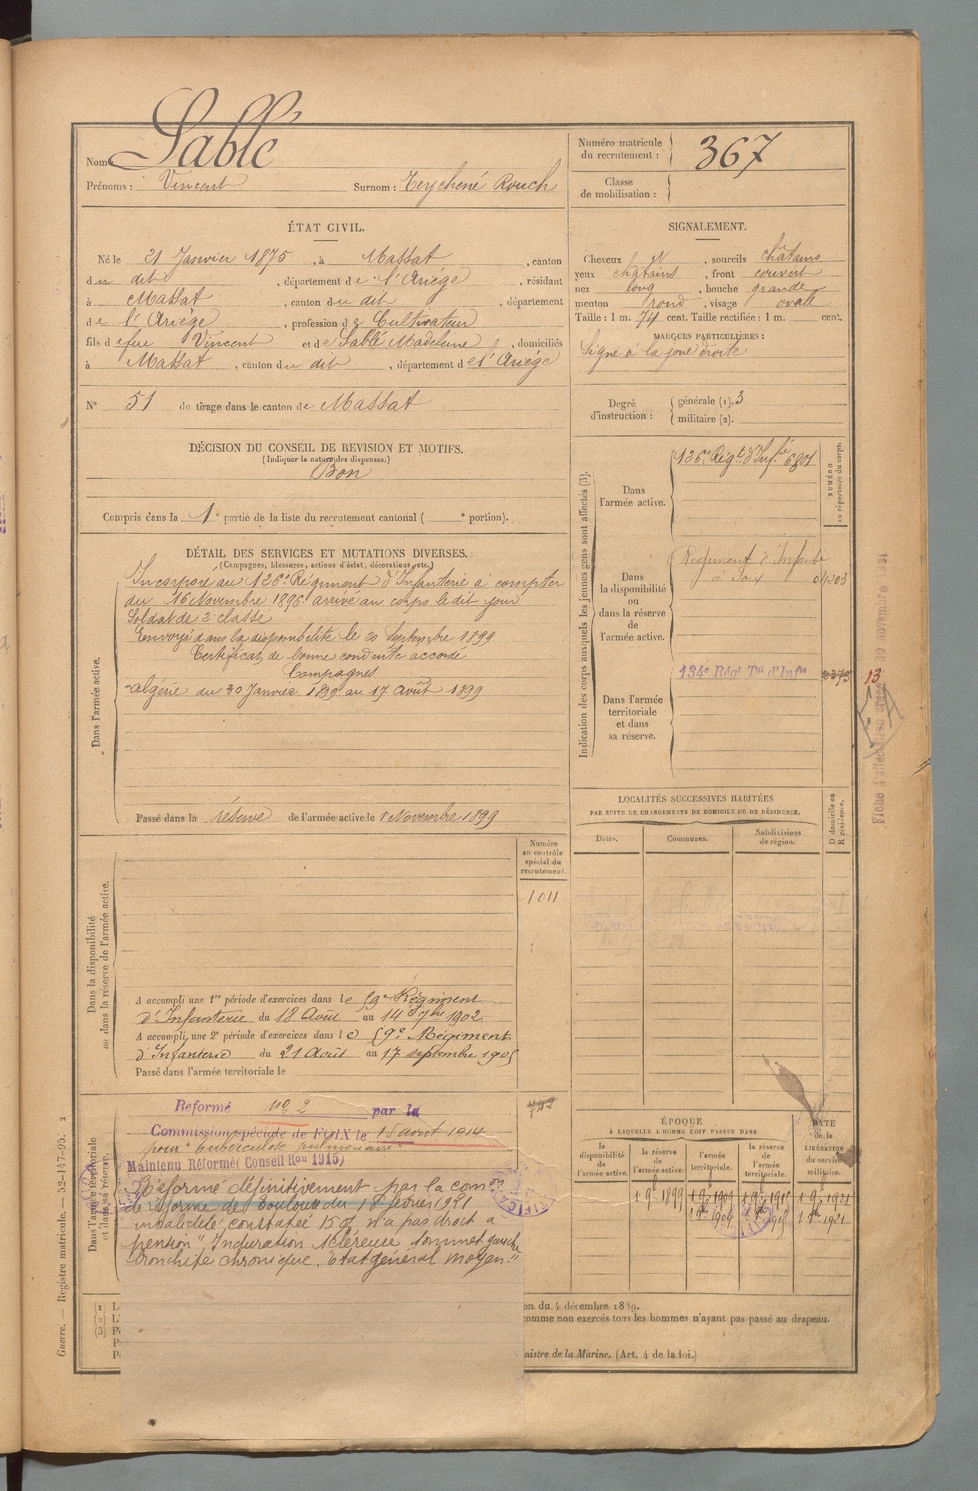 Nom : Sablé
Prénoms : Vincent Surnom : Teychené Rouch
Numéro matricule du recrutement : 367
Classe de mobilisation :
ÉTAT CIVIL.
Né le 21 Janvier 1875, à Massat, canton
du dit, département de l'Ariége, résidant
à Massat, canton du dit, département
de l'Ariége, profession de Cultivateur
fils de feu Vincent et de Sablé Madeleine, domiciliés
à Massat, canton du dit, département de l'Ariége
N° 51 de tirage dans le canton de Massat
DÉCISION DU CONSEIL DE REVISION ET MOTIFS.
(Indiquer la nature des dispenses.)
Bon
Compris dans la 1e partie de la liste du recrutement cantonal ( e portion).
SIGNALEMENT.
Cheveux N, sourcils châtains
yeux châtains, front couvert
nez long, bouche grande
menton rond, visage ovale
Taille : 1 m. 74 cent. Taille rectifiée : 1 m. cent.
MARQUES PARTICULIÈRES :
Signe à la joue droite
Degré d'instruction : générale (1). 3
militaire (2).
DÉTAIL DES SERVICES ET MUTATIONS DIVERSES.
(Campagnes, blessures, actions d'éclat, décorations, etc.)
Dans l'armée active.
Incorporé au 126e Régiment d'Infanterie à compter
du 16 Novembre 1896 arrivé au corps le dit jour
Soldat de 2e classe
Envoyé dans la disponibilité le 20 Septembre 1899
Certificat de bonne conduite accordé
Campagnes
Algérie du 30 Janvier 1899 au 17 Août 1899
Passé dans la réserve de l'armée active le 1 Novembre 1899
Indication des corps auxquels les jeunes gens sont affectés (3).
NUMÉRO au répertoire du corps.
Dans l'armée active.
126e Régt d'Infie 6801
Dans la disponibilité ou dans la réserve de l'armée active.
Régiment d'Infanterie
à Foix 01303
Dans l'armée territoriale et dans sa réserve.
134e Régt Tal d'Infie
13
LOCALITÉS SUCCESSIVES HABITÉES
PAR SUITE DE CHANGEMENTS DE DOMICILE OU DE RÉSIDENCE.
Dates.
Communes.
Subdivisions de région.
D domicile ou R résidence.
Dans la disponibilité ou dans la réserve de l'armée active.
Numéro au contrôle spécial du recrutement.
1011
A accompli une 1re période d'exercices dans le 59e Régiment
d'Infanterie du 18 Août au 14 7bre 1902
A accompli une 2e période d'exercices dans le 59e Régiment
d'Infanterie du 21 Août au 17 septembre 1905
Passé dans l'armée territoriale le
Dans l'armée territoriale et dans sa réserve.
Reformé no 2 par la
Commission spéciale de FOIX le 15 avril 1914
pour tuberculose pulmonaire
Maintenu Réformé (Conseil Ron 1915)
Réformé définitivement par la comon
de réforme de Toulouse du 18 février 1921
invalidité constatée 15 % n'a pas droit à
pension "Induration scléreuse sommet gauche
bronchite chronique. Etat général moyen."
ÉPOQUE
À LAQUELLE L'HOMME DOIT PASSER DANS
la disponibilité de l'armée active.
la réserve de l'armée active.
l'armée territoriale.
la réserve de l'armée territoriale.
DATE de la LIBÉRATION du service militaire.
1 9bre 1899
1 9bre 1909
1 9bre 1915
1 9bre 1921
on du 4 décembre 1889.
comme non exercés tous les hommes n'ayant pas passé au drapeau.
inistre de la Marine. (Art. 4 de la loi.)
Guerre. — Registre matricule. — 52-147-95.